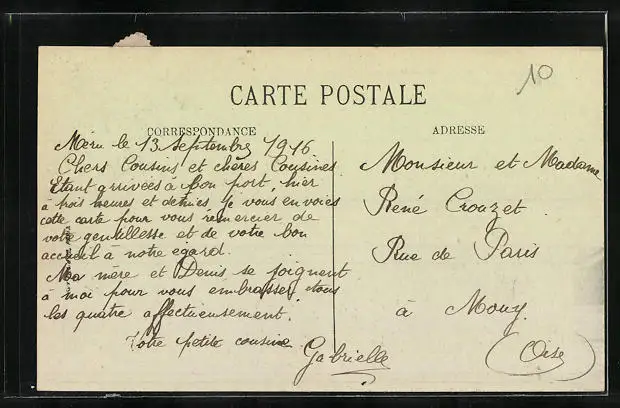 10
CARTE POSTALE
CORRESPONDANCE
Méru le 13 Septembre 1916
Chers Cousins et chères Cousines
Etant arrivées à bon port, hier
à trois heures et demies, je vous envoies
cette carte pour vous remercier de
votre gentillesse et de votre bon
accueil à notre égard.
Ma mère et Denis se joignent
à moi pour vous embrasser tous
les quatre affectueusement.
Votre petite cousine
Gabrielle
ADRESSE
Monsieur et Madame
René Crouzet
Rue de Paris
à Mouy
(Oise)